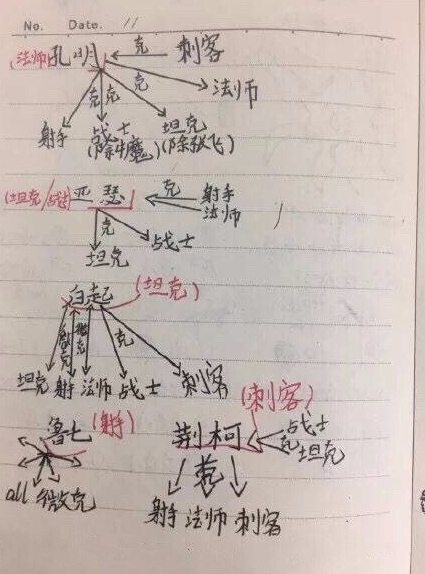 No. Date. 11
(法师)孔明 克 刺客
克 克 克 法师
射手 战士 坦克
(除牛魔) (除张飞)
(坦克/战士) 亚瑟 克 射手
法师
克 战士
坦克
白起 (坦克)
微克 克
坦克 射 法师 战士 刺客
鲁七 (射手) (刺客)
荆柯 克 战士
坦克
all 微克 克
射手 法师 刺客